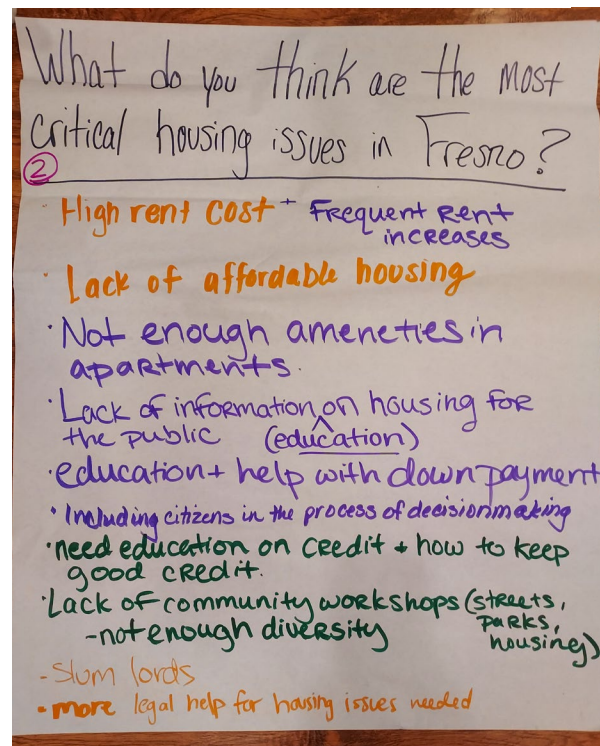 What do you think are the most
critical housing issues in Fresno?
②
· High rent cost + Frequent Rent
increases
· Lack of affordable housing
· Not enough ameneties in
apartments.
· Lack of information ^ on housing for
the public (education)
· education + help with down payment
· Including citizens in the process of decisionmaking
· need education on credit + how to keep
good credit.
· Lack of community workshops (streets,
parks,
- not enough diversity
housing)
- Slum lords
- more legal help for housing issues needed